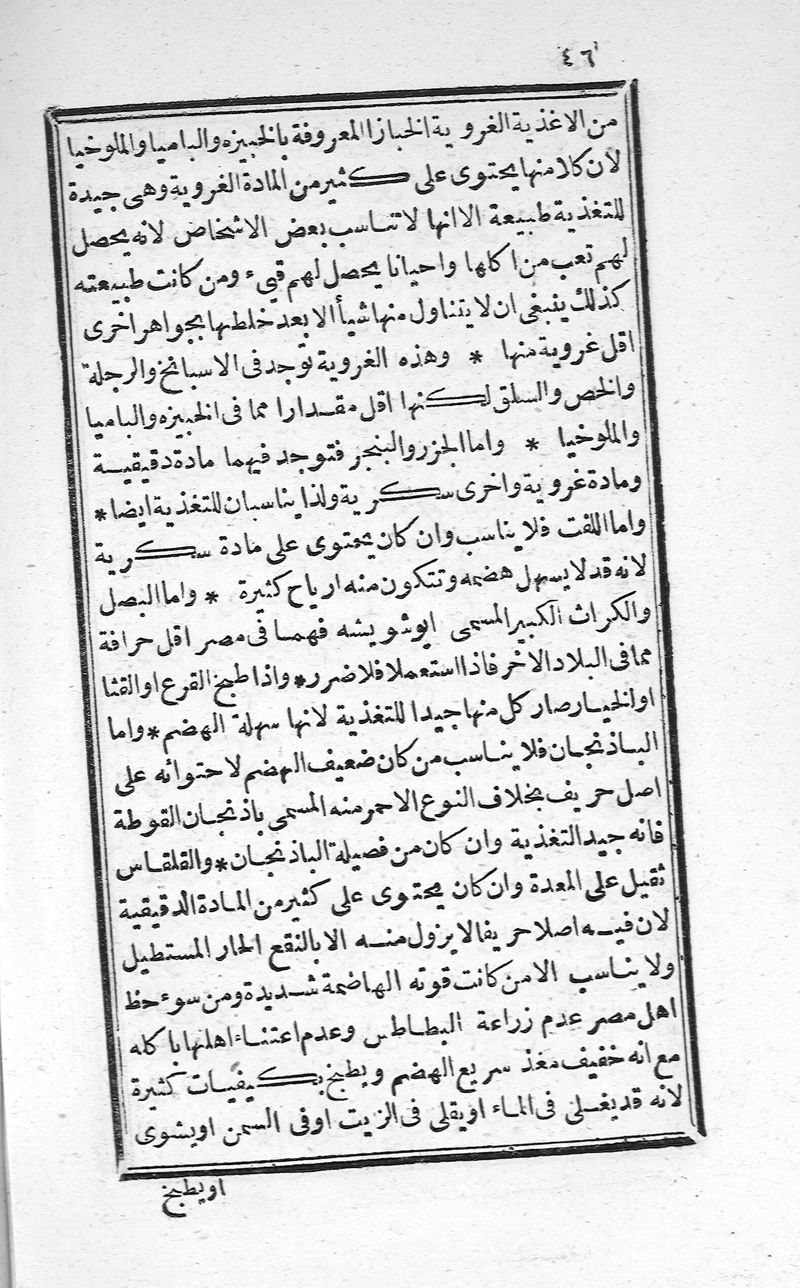 ٤٦
من الاغذية الغروية الخبازا المعروفة بالخبيزه والباميا والملوخيا
لان كلا منها يحتوى على كثير من المادة الغروية وهى جيدة
للتغذية طبيعة الا انها لا تناسب بعض الاشخاص لانه يحصل
لهم تعب من اكلها واحيانا يحصل لهم قيء ومن كانت طبيعته
كذلك ينبغى ان لا يتناول منها شيأ الا بعد خلطها بجواهر اخرى
اقل غروية منها * وهذه الغروية توجد فى الاسبانخ والرجلة
والخص والسلق لكنها اقل مقدارا مما فى الخبيزه والباميا
والملوخيا * واما الجزر والبنجر فتوجد فيهما مادة دقيقية
ومادة غروية واخرى سكرية ولذا يناسبان للتغذية ايضا *
واما اللفت فلا يناسب وان كان يحتوى على مادة سكرية
لانه قد لا يسهل هضمه وتتكون منه ارياح كثيرة * واما البصل
والكراث الكبير المسمى ابوشويشه فهما فى مصر اقل حرافة
مما فى البلاد الاخر فاذا استعملا فلا ضرر * واذا طبخ القرع او القثا
او الخيار صار كل منها جيدا للتغذية لانها سهلة الهضم * واما
الباذنجان فلا يناسب من كان ضعيف الهضم لاحتوائه على
اصل حريف بخلاف النوع الاحمر منه المسمى باذنجان القوطة
فانه جيد التغذية وان كان من فصيلة الباذنجان * والقلقاس
ثقيل على المعدة وان كان يحتوى على كثير من المادة الدقيقية
لان فيه اصلا حريفا لا يزول منه الا بالنقع الحار المستطيل
ولا يناسب الا من كانت قوته الهاضمة شديدة ومن سوء حظ
اهل مصر عدم زراعة البطاطس وعدم اعتناء اهلها باكله
مع انه خفيف مغذ سريع الهضم ويطبخ بكيفيات كثيرة
لانه قد يغلى فى الماء او يقلى فى الزيت او فى السمن او يشوى
او يطبخ